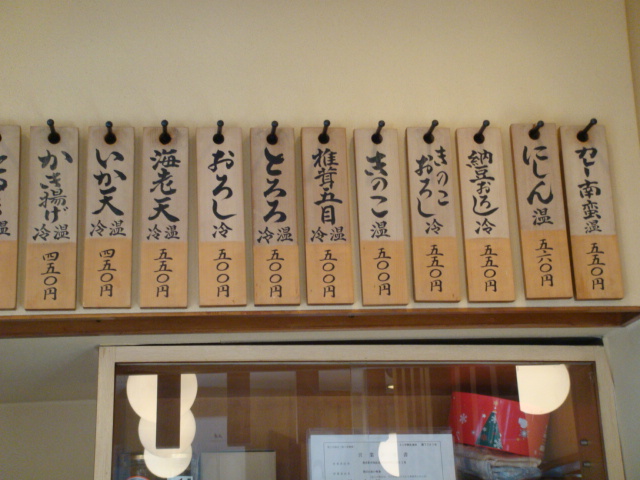 カレー南蛮 温 五五〇円
にしん 温 五六〇円
納豆おろし 冷 五五〇円
きのこおろし 冷 五五〇円
きのこ 温 五〇〇円
椎茸五目 冷温 五〇〇円
とろろ 冷温 五〇〇円
おろし 冷 五〇〇円
海老天 冷温 五五〇円
いか天 冷温 四五〇円
かき揚げ 冷温 四五〇円